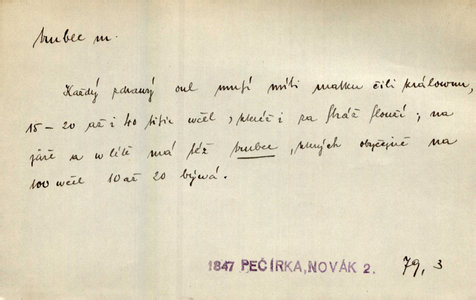 trubec m.
Každý zdrawý oul musí míti matku čili králownu,
15-20 až i 40 tisíc wčel, které i za stráž slouží; na
jaře a w létě má též trubce, kterých obyčejně na
100 wčel 10 až 20 býwá.
1847 PEČÍRKA, NOVÁK 2. 79, 3